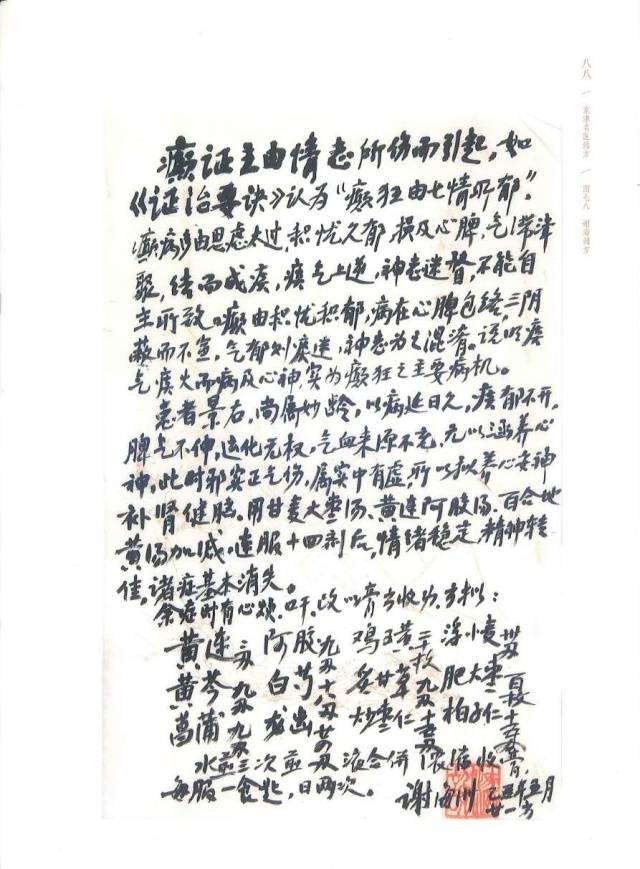 八八 | 京津名医药方 | 图七八 谢海洲方
癫证主由情志所伤而引起，如
《证治要诀》认为“癫狂由七情所郁”。
癫病多由思虑太过，积忧久郁，损及心脾，气滞津
聚，结而成痰，痰气上逆，神志迷蒙，不能自
主所致。癫由积忧积郁，病在心脾包络，三阴
蔽而不宣，气郁则痰迷，神志为之混淆。说明痰
气痰火而病及心神，实为癫狂之主要病机。
患者景右，尚属妙龄，以病延日久，痰郁不开，
脾气不伸，运化无权，气血来源不充，无以涵养心
神，此时邪实正气伤，属实中有虚，所以拟养心安神
补肾健脑。用甘麦大枣汤、黄连阿胶汤、百合地
黄汤加减。连服十四剂后，情绪稳定，精神转
佳，诸症基本消失。
余症时有心烦、口干，改以膏方收功，方拟：
黄连三 阿胶九 鸡子黄二枚 浮小麦卅
黄芩九 白芍十八 炙甘草九 肥大枣百枚
菖蒲九 龙齿廿四 炒枣仁十五 柏子仁十五
水煎三次，煎液合併，浓缩收膏，
每服一食匙，日两次。
谢海洲 乙丑年五月
廿一方